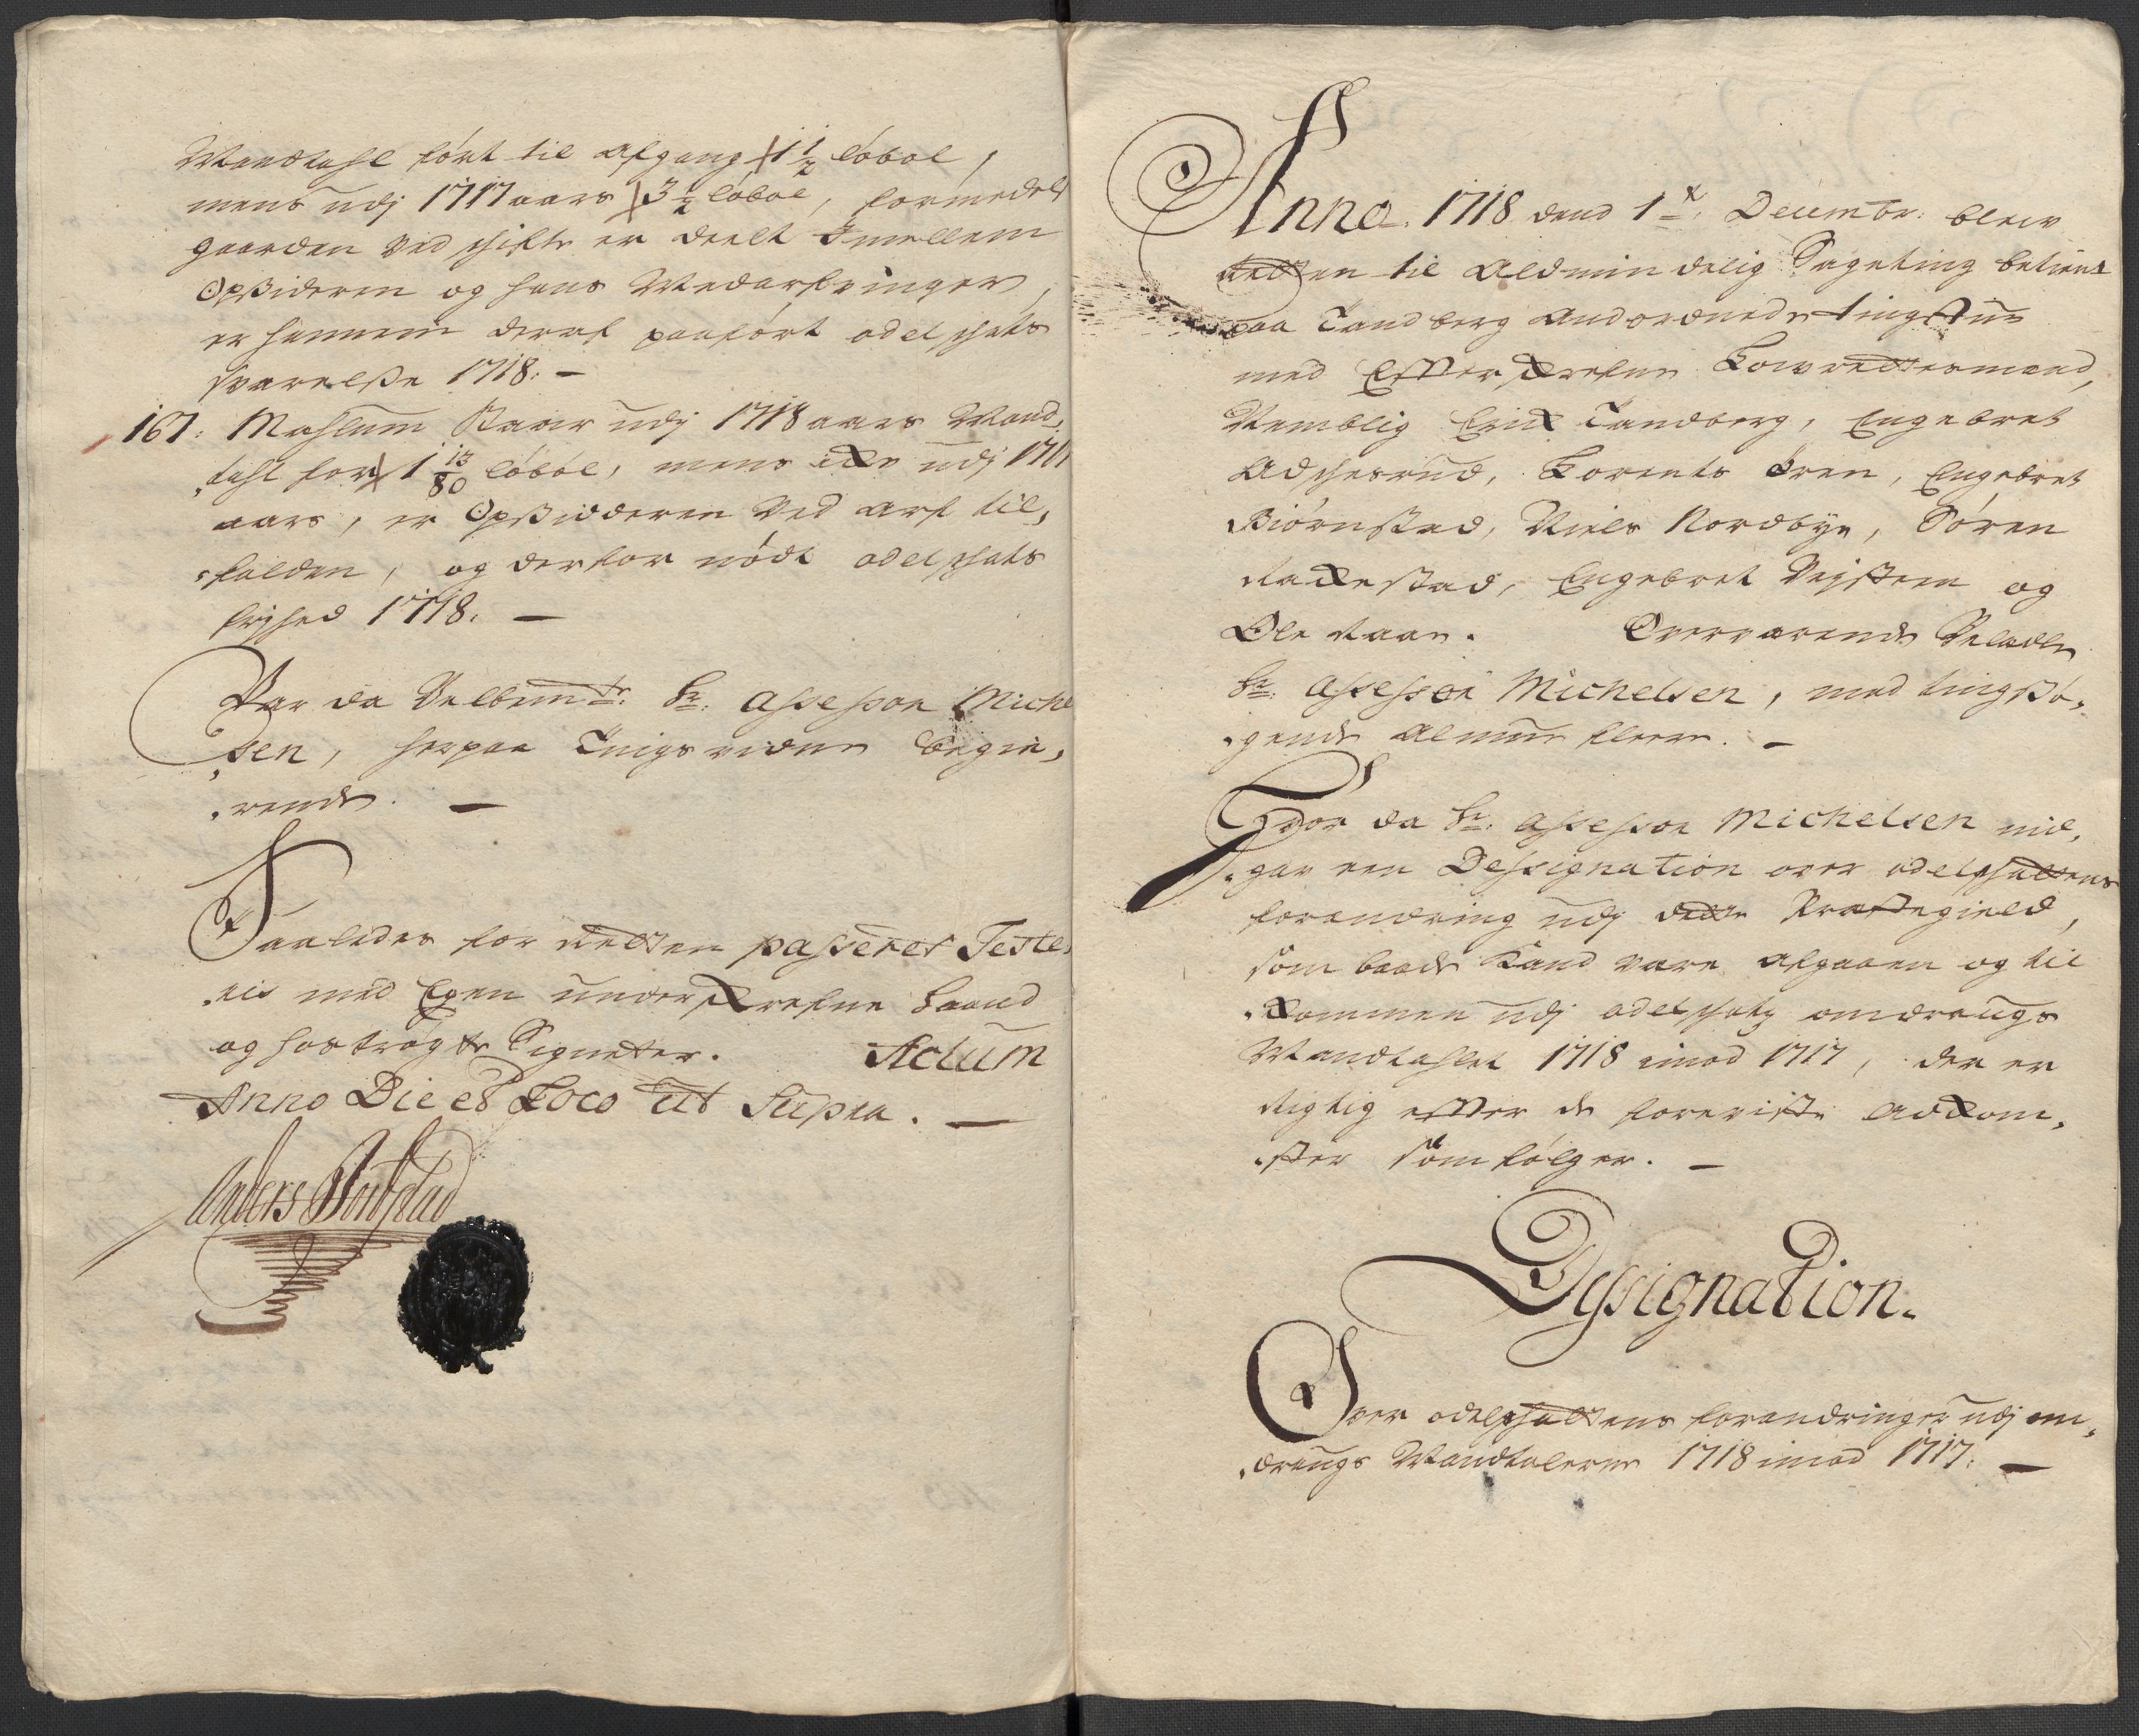 Mandtahl ført til afgang 1 1/2 løbol,
mens udj 1717 aars 3 1/2 løbol, formedelst
gaarden ved schifte er deelt Imellem
Opßideren og hans Medarfvinger,
er hannem deraf paaført odelschats
svarelße 1718. –
167: Mæhlum staar udj 1718 aars Mand,,
,,tahl for 1 13/80 løbol, mens icke udj 1717
aars, er Opßidderen ved arf til,,
,,falden, og derfor nødt odelschats
frihed 1718. –
Var da Velbemte: Hr: Assessor Michel
,,sen, herpaa Tings vidne begie,,
,,rende. –
Saaledes for Retten passeret Teste,,
,,ris med Egen underskrefne Haand
og hostrøgte Signeter. Actum
Anno Die et Loco ut Supra. –
Anders
Anno 1718 dend 1te: Decembr: blev
Retten til Aldmindelig Sageting betient
paa Tandberg Anordnede tingstue
med Efterskrefne Lowrettesmænd,
Nemblig Erik Tandberg, Engebret
Adschesrud, Lorents Øren, Engebret
Biørnstad, Niels Nordbye, Søren
Rackestad, Engebret Vejstem og
Ole Raae. Overværende Veladle
Hr: Assessor Michelsen, med tingßø,,
,,gende Almue fleere. –
Hvor da Hr: Assessor Michelsen ind,,
,,gav een Dessignation over odelschattens
forandring udj dette Præstegield,
som baade kand være afgaaen og til
,,kommen udj odelschatz omdrougs
Mandtahlet 1718 imod 1717, der er
Rigtig efter de foreviste Adkom,,
,,ster som følger. –
Dessignation.
Over odelschattens forandringer udj om,,
,,drougs Mandtalerne 1718 imod 1717. –